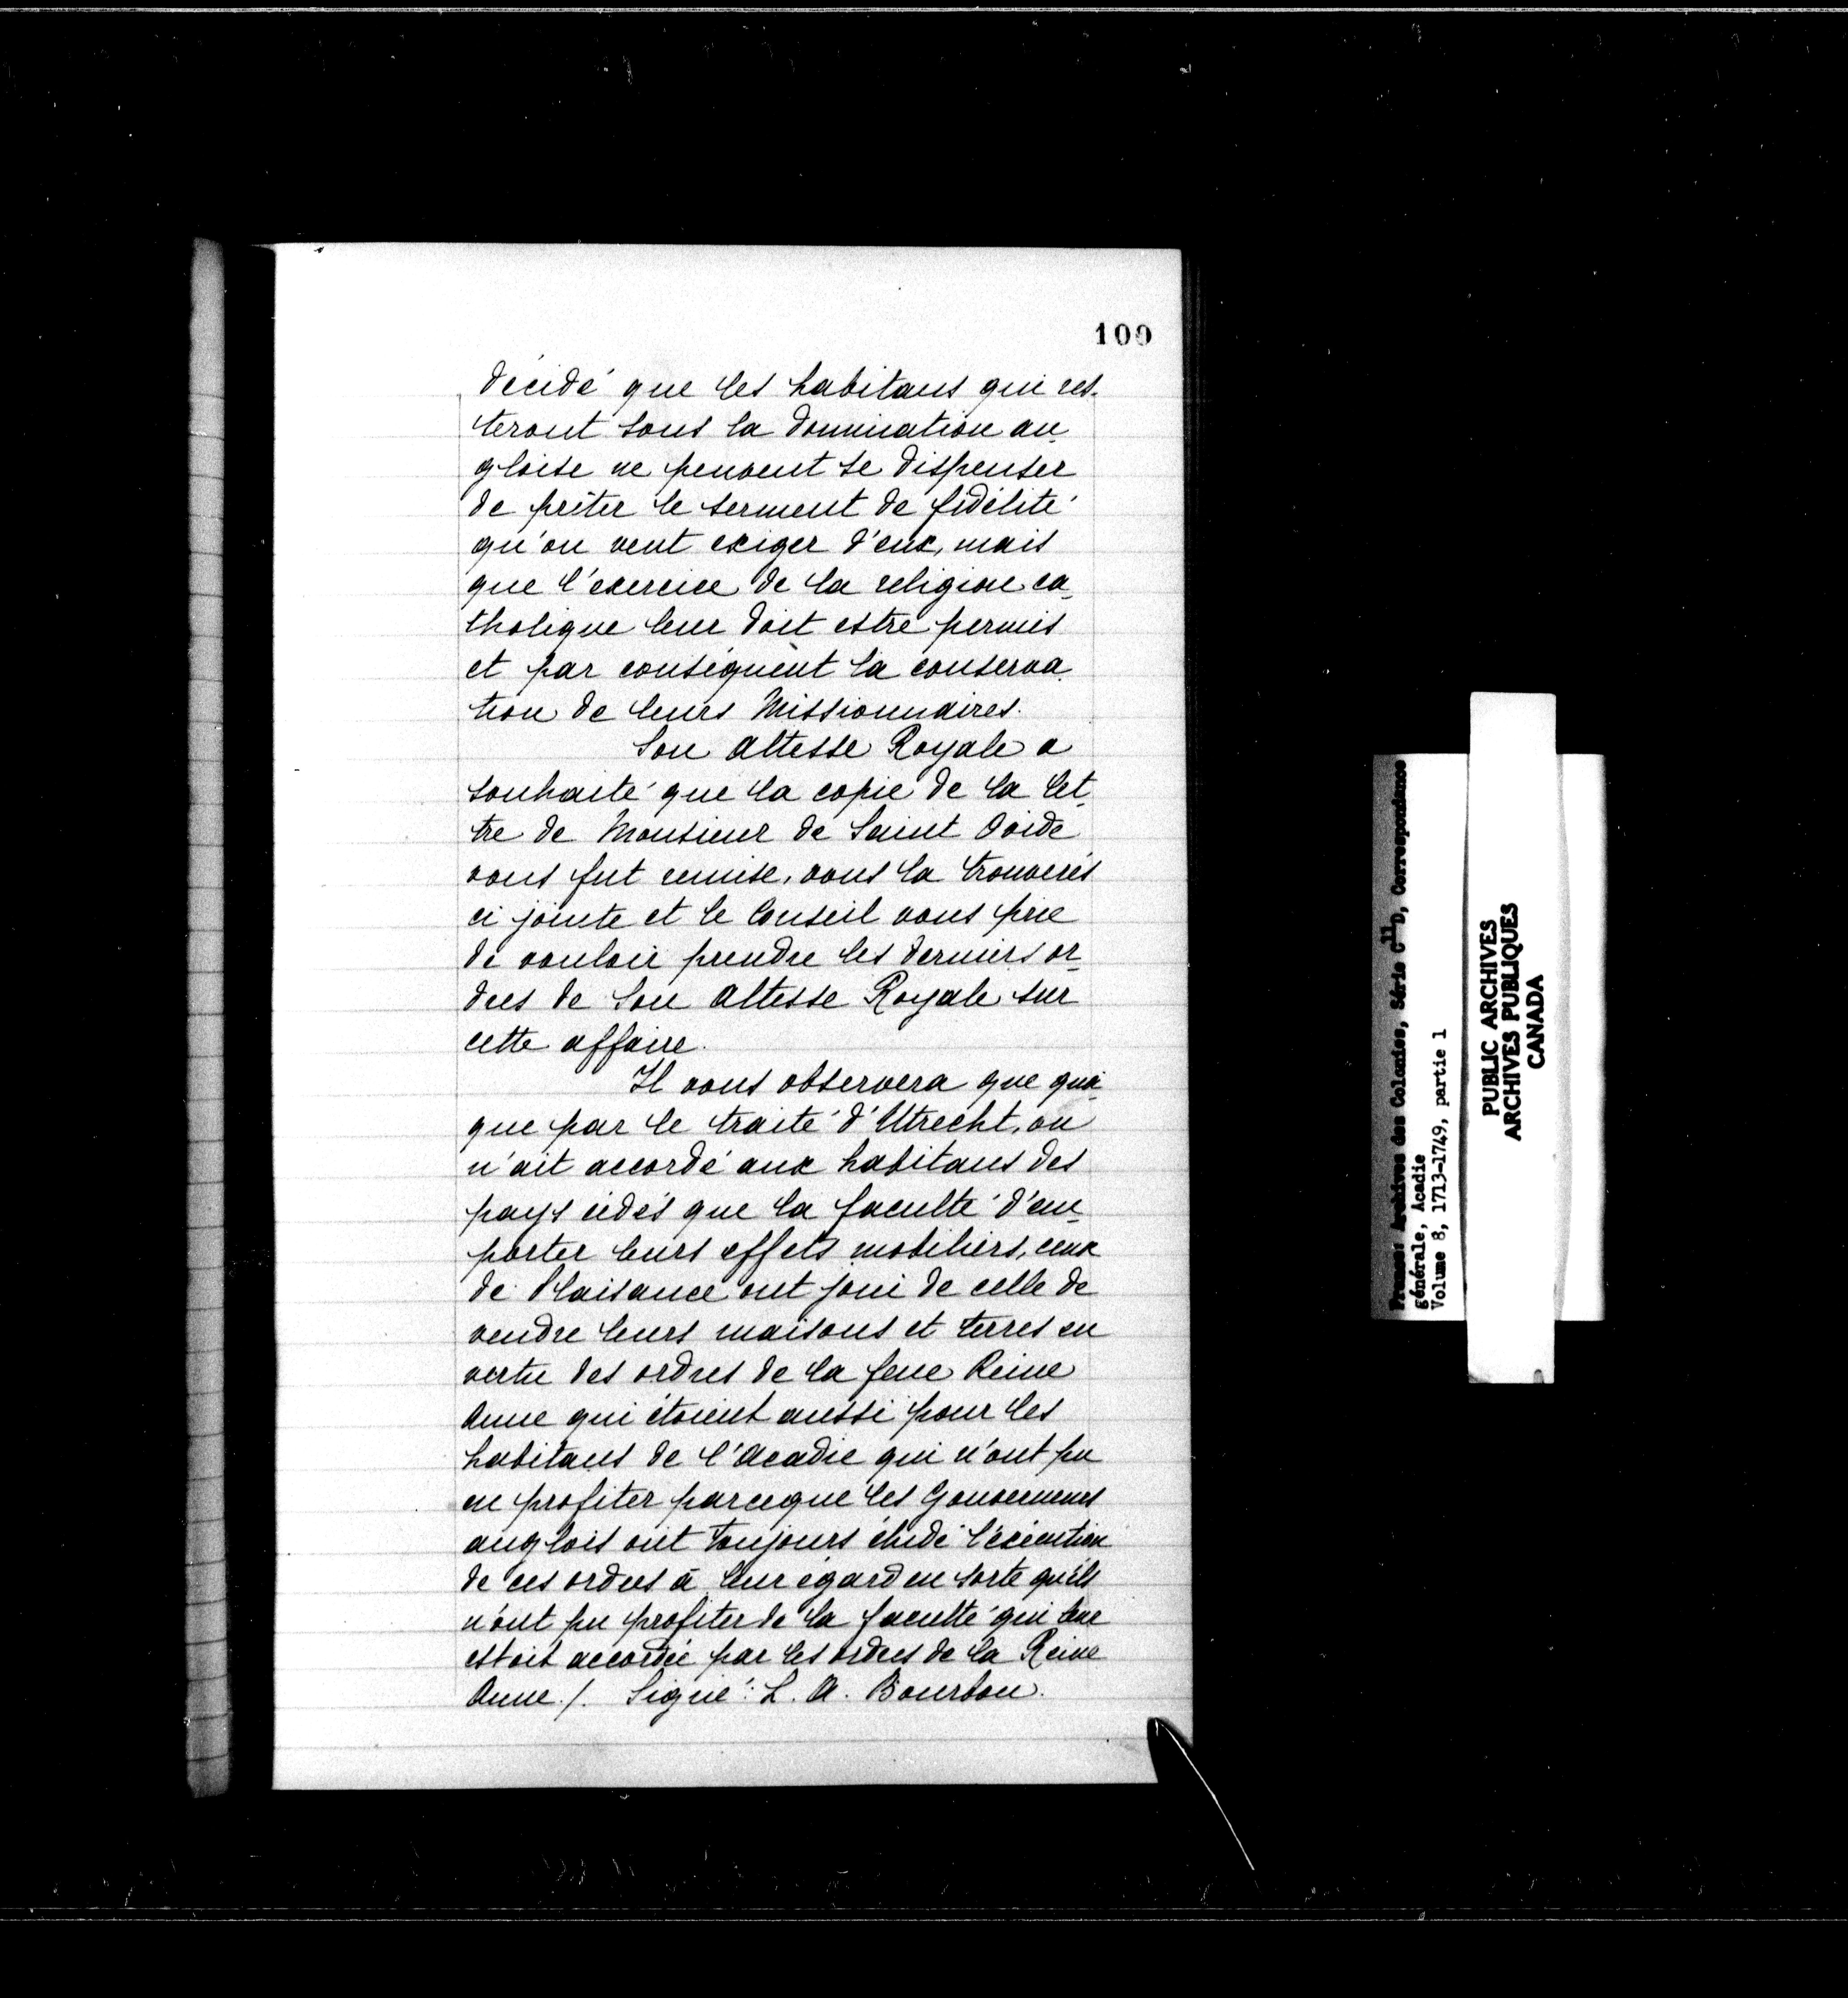 100
décidé que les habitans qui res-
teront sous la domination an-
gloise ne peuvent se dispenser
de prêter le serment de fidélité
qu'on veut exiger d'eux, mais
que l'exercice de la religion ca-
tholique leur doit estre permis
et par conséquent la conserva-
tion de leurs Missionnaires.
Son Altesse Royale a
souhaité que la copie de la let-
tre de Monsieur de Saint Ovide
vous fut remise, vous la trouverés
ci jointe et le Conseil vous prie
de vouloir prendre les derniers or-
dres de Son Altesse Royale sur
cette affaire.
Il vous observera que quoi-
que par le traité d'Utrecht, on
n'ait accordé aux habitans des
pays cédés que la faculté d'em-
porter leurs effets mobiliers, ceux
de Plaisance ont joui de celle de
vendre leurs maisons et terres en
vertu des ordres de la feue Reine
Anne qui étoient aussi pour les
habitans de l'Acadie qui n'ont pu
en profiter parceque les Gouverneurs
anglois ont toujours éludé l'exécution
de ces ordres à leur égard en sorte qu'ils
n'ont pu profiter de la faculté qui leur
estoit accordée par les ordres de la Reine
Anne ./. Signé: L. A. Bourbon.
France: Archives des Colonies, Série C11D, Correspondance
générale, Acadie
Volume 8, 1713-1749, partie 1
PUBLIC ARCHIVES
ARCHIVES PUBLIQUES
CANADA